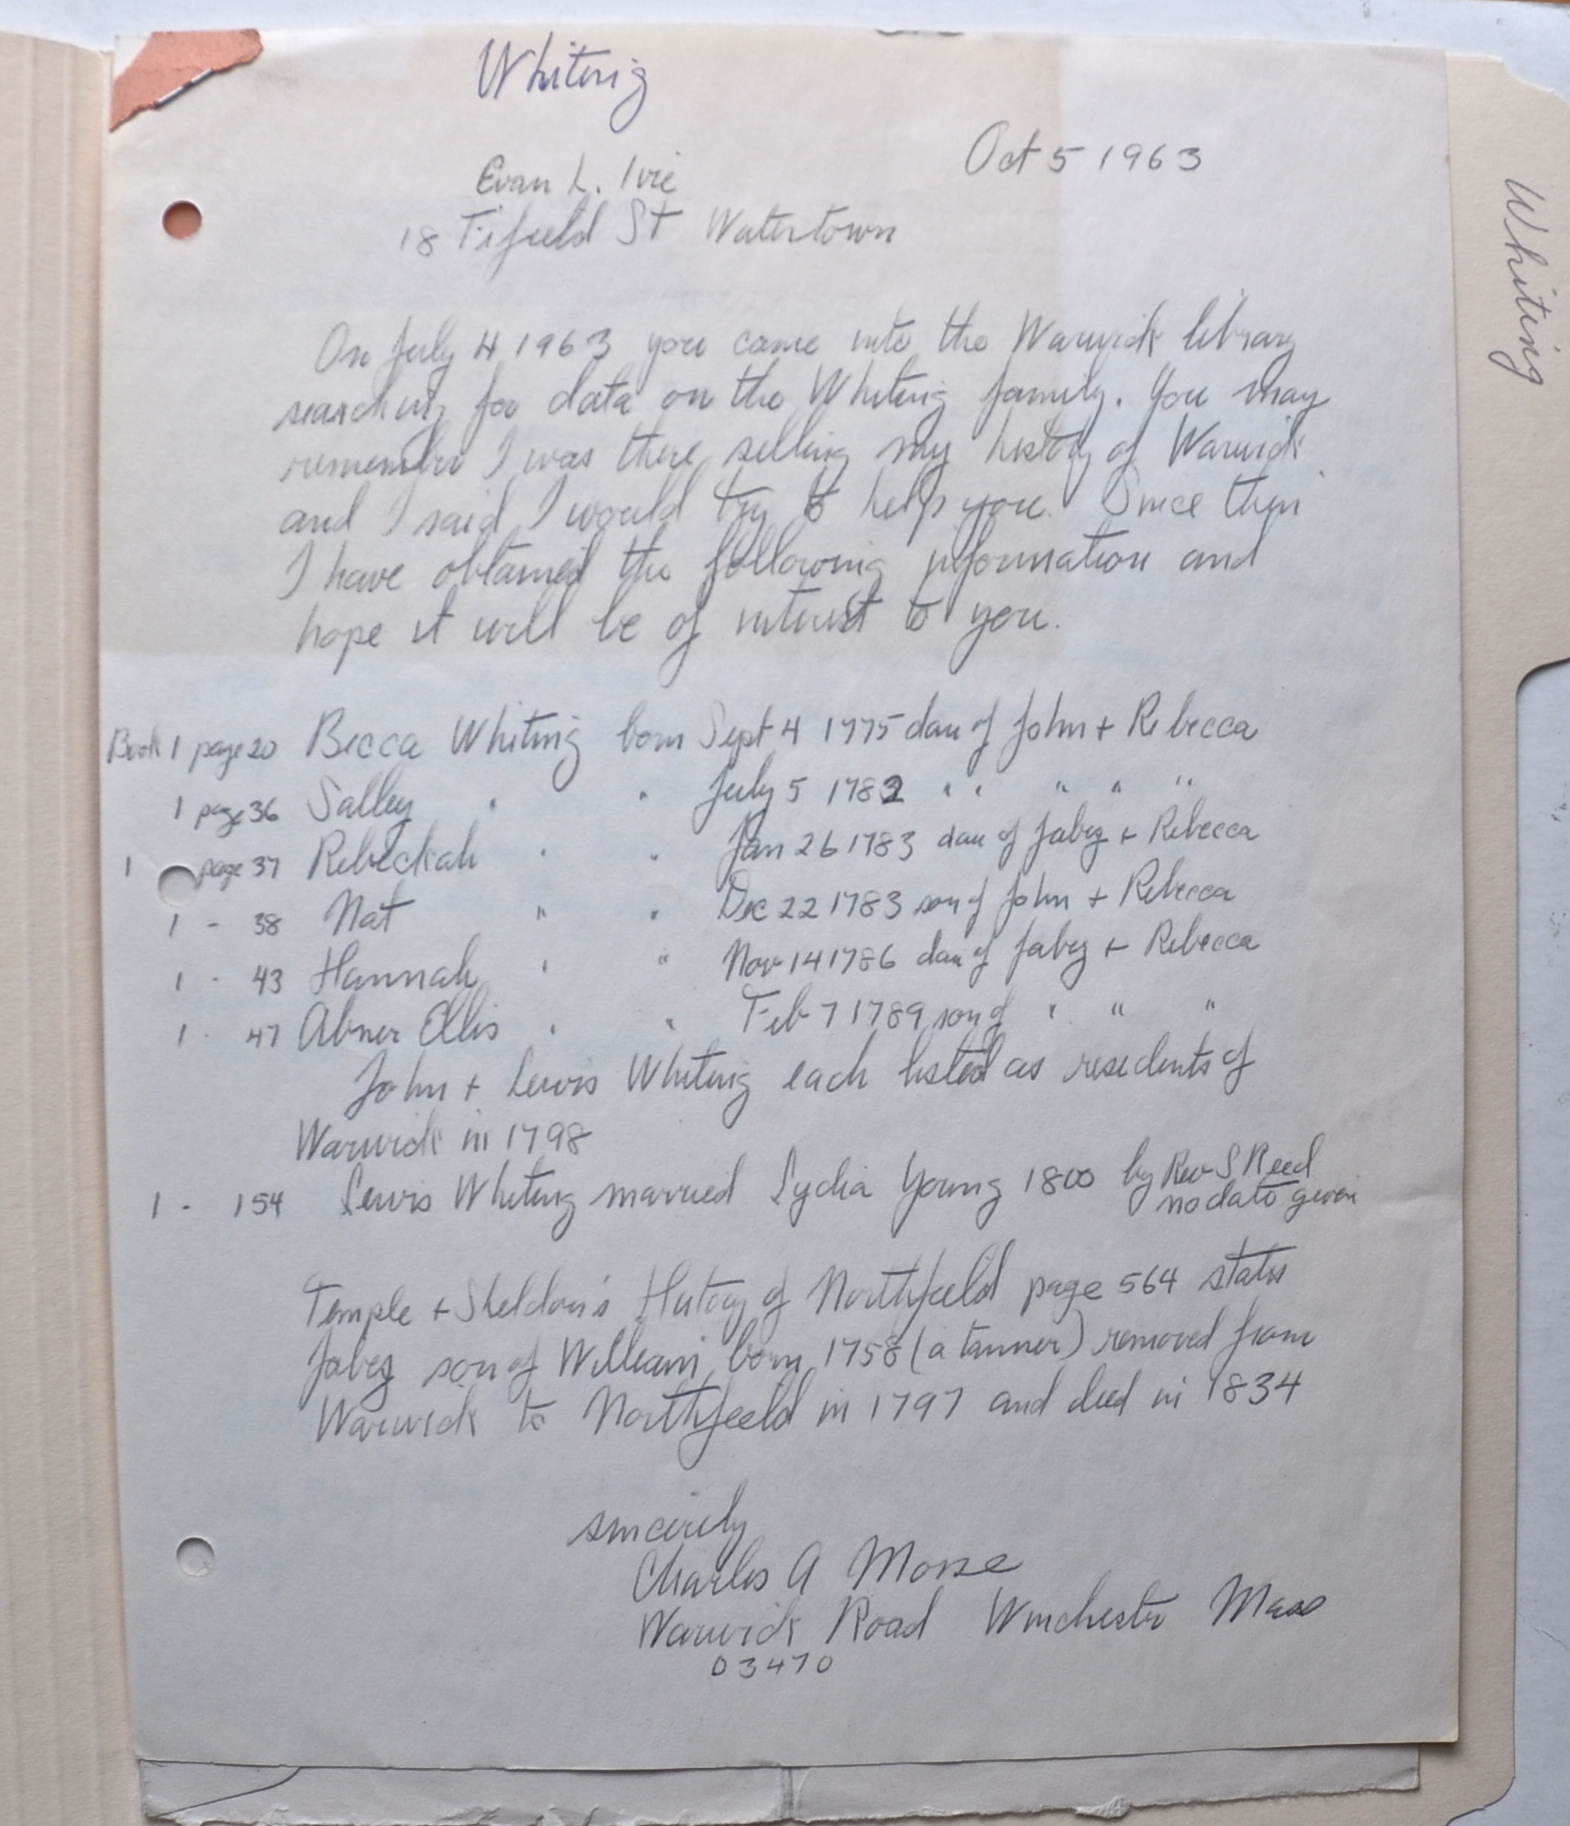 Whiting
Oct 5 1963
Evan L. Ivie
18 Fifield St Watertown
On July 4 1963 you came into the Warwick library
searching for data on the Whiting family. You may
remember I was there selling my history of Warwick
and I said I would try to help you. Since then
I have obtained the following information and
hope it will be of interest to you.
Book 1 page 20 Becca Whiting born Sept 4 1775 dau of John + Rebecca
1 page 36 Salley " " July 5 1782 " " " " "
1 page 37 Rebeckah " " Jan 26 1783 dau of Jabez + Rebecca
1 - 38 Nat " " Dec 22 1783 son of John + Rebecca
1 - 43 Hannah " " Nov 14 1786 dau of Jabez + Rebecca
1 - 47 Abner Ellis " " Feb 7 1789 son of " " "
John + Lewis Whiting each listed as residents of
Warwick in 1798
1 - 154 Lewis Whiting married Lydia Young 1800 by Rev S Reed
no date given
Temple + Sheldon's History of Northfield page 564 states
Jabez son of William born 1758 (a tanner) removed from
Warwick to Northfield in 1797 and died in 1834
sincerely
Charles A Morse
Warwick Road Winchester Mass
03470
Whiting